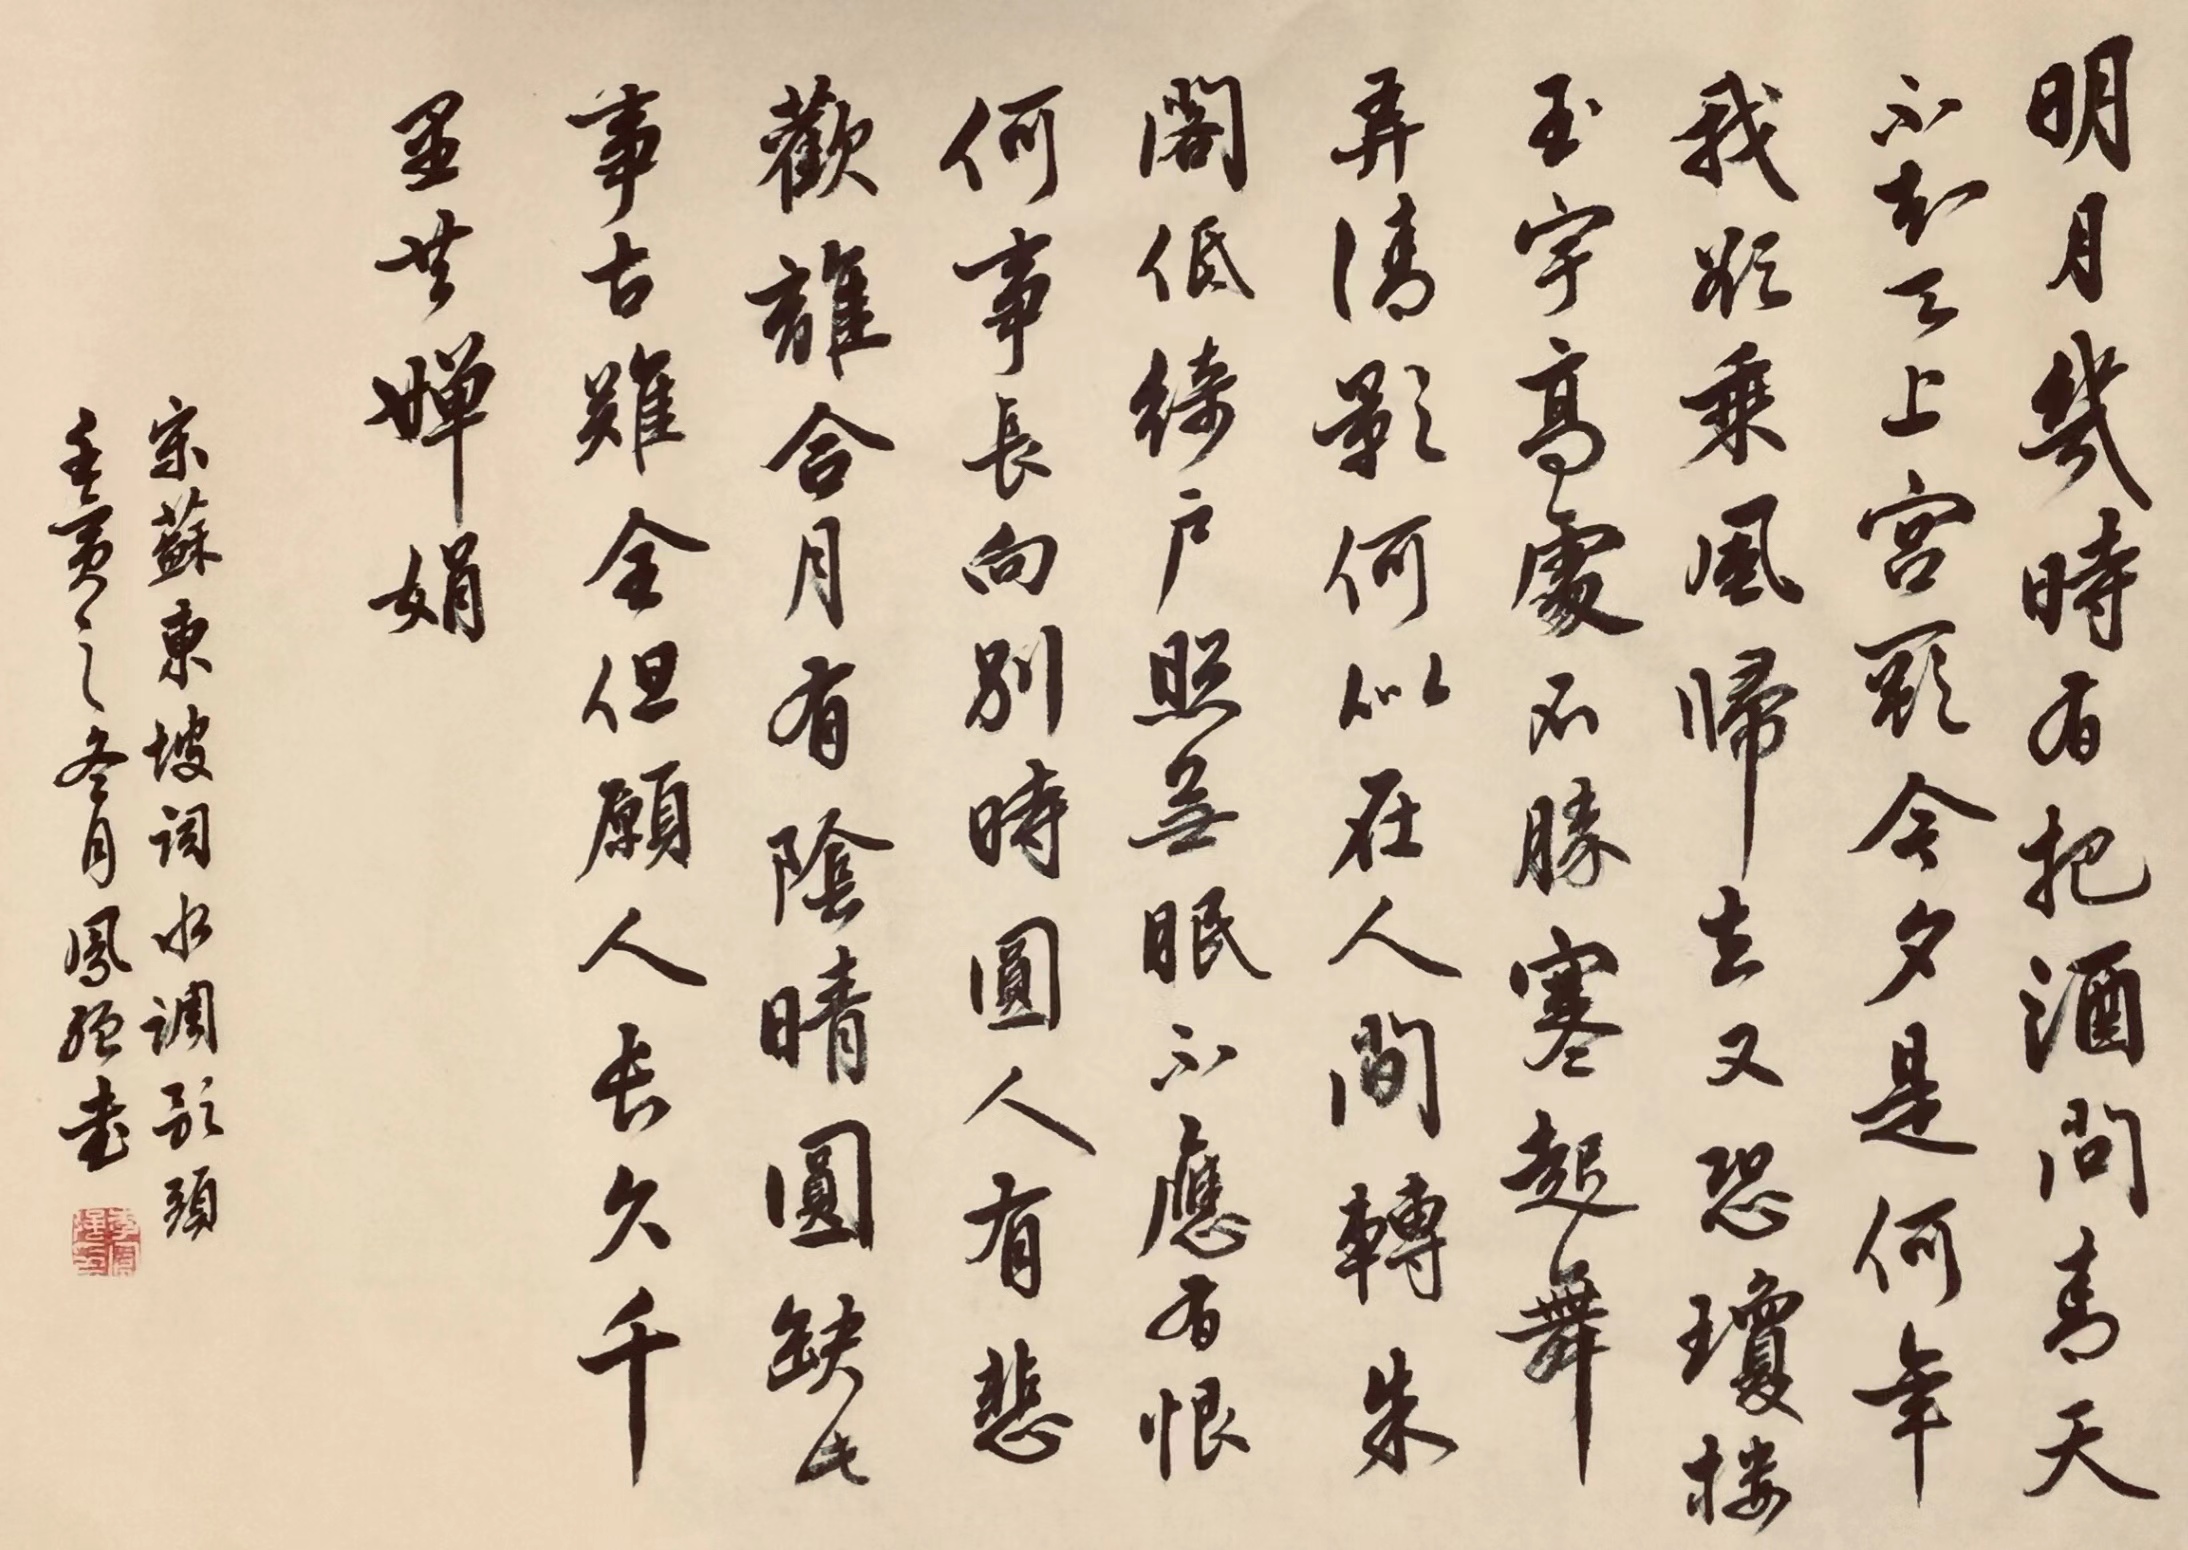 明月幾時有把酒問青天
不知天上宫闕今夕是何年
我欲乘風歸去又恐瓊楼
玉宇高處不勝寒起舞
弄清影何似在人間轉朱
閣低綺户照無眠不應有恨
何事長向別時圓人有悲
歡離合月有陰晴圓缺此
事古難全但願人长久千
里共嬋娟
宋蘇東坡詞水調歌頭
壬寅之冬月鳳強書